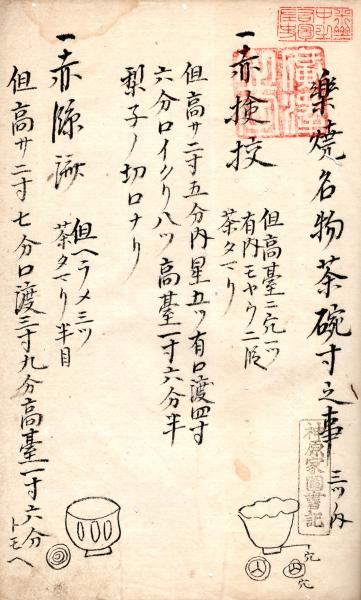 樂燒名物茶碗寸之事 三ツ内
一赤撿挍
但高臺ニ穴一ツ
有内モヤウ二段
茶タマリ
但高サ二寸五分内星五ツ有口渡四寸
六分ロイクリ八ツ高臺一寸六分半
梨子ノ切口ナリ
一赤
但ヘラメ三ツ
茶タマリ半目
但高サ二寸七分口渡三寸九分高臺一寸六分
トモヘ
穴
穴
神原家圖書記